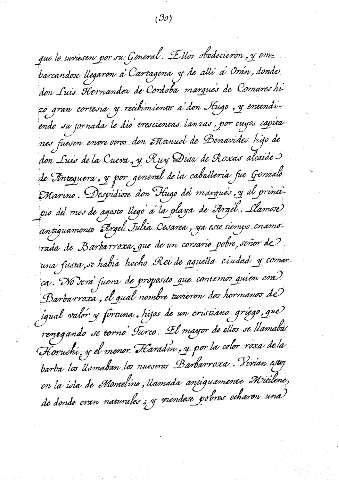 (30)
que le tuviesen por su General. Ellos obedecieron, y em-
barcandose llegaron á Cartagena y de alli á Orán, donde
don Luis Hernandez de Cordoba marques de Comares hi-
zo gran cortesia y recibimiento á don Hugo, y entendi-
endo su jornada le dio trescientas lanzas, por cuyos capita
nes fuesen entre otros don Manuel de Benavides hijo de
don Luis de la Cueva, y Ruy Diaz de Roxas alcaide
de Antequera, y por general de la caballeria fue Gonzalo
Marino. Despidiose don Hugo del marques, y al princi-
pio del mes de agosto llegó á la playa de Argél. Llamose
antiguamente Argel Julia Cesarea, ya este tiempo enamo-
rada de Barbarroxa, que de un corsario pobre, señor de
una fusta, se habia hecho Rei de aquella ciudad y comar
ca. No será fuera de proposito que contemos quien era
Barbarroxa, el qual nombre tuvieron dos hermanos de
igual valór y fortuna, hijos de un cristiano griego, que
renegando se tornó Turco. El mayor de ellos se llamaba
Horuchi, y el menor Haradin, y por la color roxa de la
barba los llamaban los nuestros Barbarroxa. Vivian estos
en la isla de Montelino, llamada antiguamente Mitilene,
de donde eran naturales; y viendose pobres echaron una